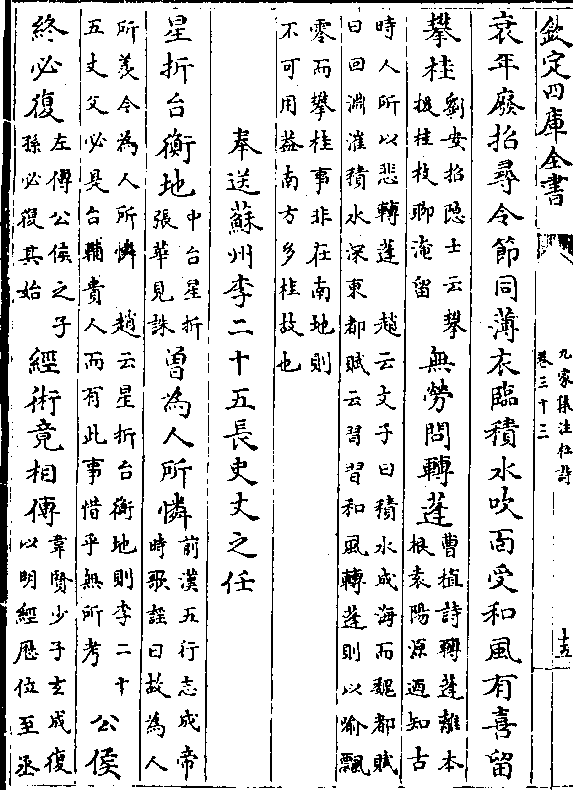 欽定四庫全書
九家集注杜詩
卷三十三
十五
衰年廢招尋令節同薄衣臨積水吹面受和風有喜留
攀桂
劉安招隱士云攀
援桂枝聊淹留
無勞問轉蓬
曹植詩轉蓬離本
根袁陽源迺知古
時人所以悲轉蓬 趙云文子曰積水成海而魏都賦
曰回淵漼積水深東都賦云習習和風轉蓬則以喻飄
零而攀桂事非在南地則
不可用蓋南方多桂故也
奉送蘇州李二十五長史丈之任
星折台衡地
中台星折
張華見誅
曾為人所憐
前漢五行志成帝
時歌謡曰故為人
所羨今為人所憐 趙云星折台衡地則李二十
五丈父必是台輔貴人而有此事惜乎無所考
公侯
終必復
左傳公侯之子
孫必復其始
經術竟相傳
韋賢少子玄成復
以明經歷位至丞